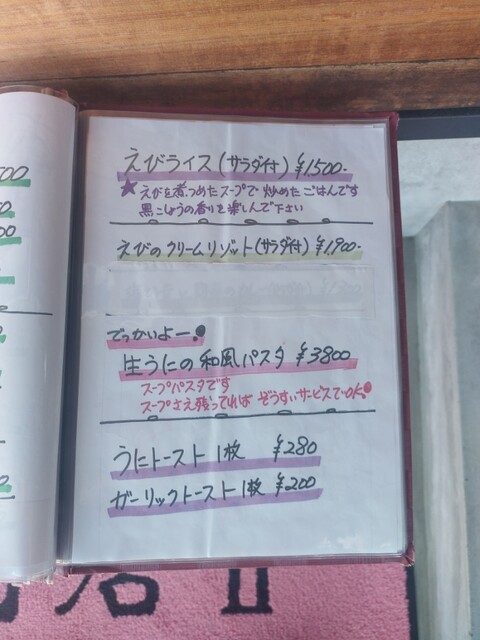 えびライス(サラダ付) ¥1500-
★えびを煮つめたスープで炒めたごはんです
黒こしょうの香りを楽しんで下さい
えびのクリームリゾット(サラダ付) ¥1,900-
でっかいよー!
生うにの和風パスタ ¥3800
スープパスタです
スープさえ残ってれば ぞうすいサービスでOK!
うにトースト1枚 ¥280
ガーリックトースト1枚 ¥200